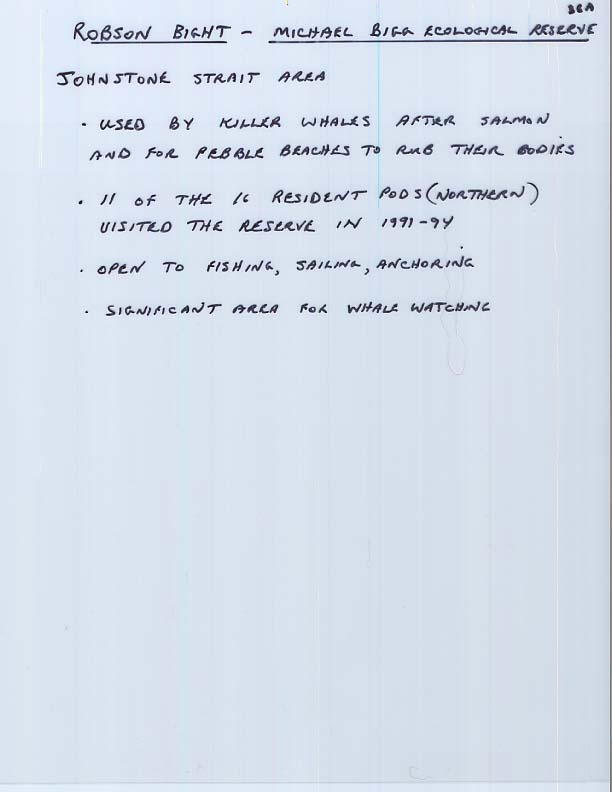 ROBSON BIGHT - MICHAEL BIGG ECOLOGICAL RESERVE
JOHNSTONE STRAIT AREA
• USED BY KILLER WHALES AFTER SALMON
AND FOR PEBBLE BEACHES TO RUB THEIR BODIES
• 11 OF THE 16 RESIDENT PODS (NORTHERN)
VISITED THE RESERVE IN 1991-94
• OPEN TO FISHING, SAILING, ANCHORING
• SIGNIFICANT AREA FOR WHALE WATCHING